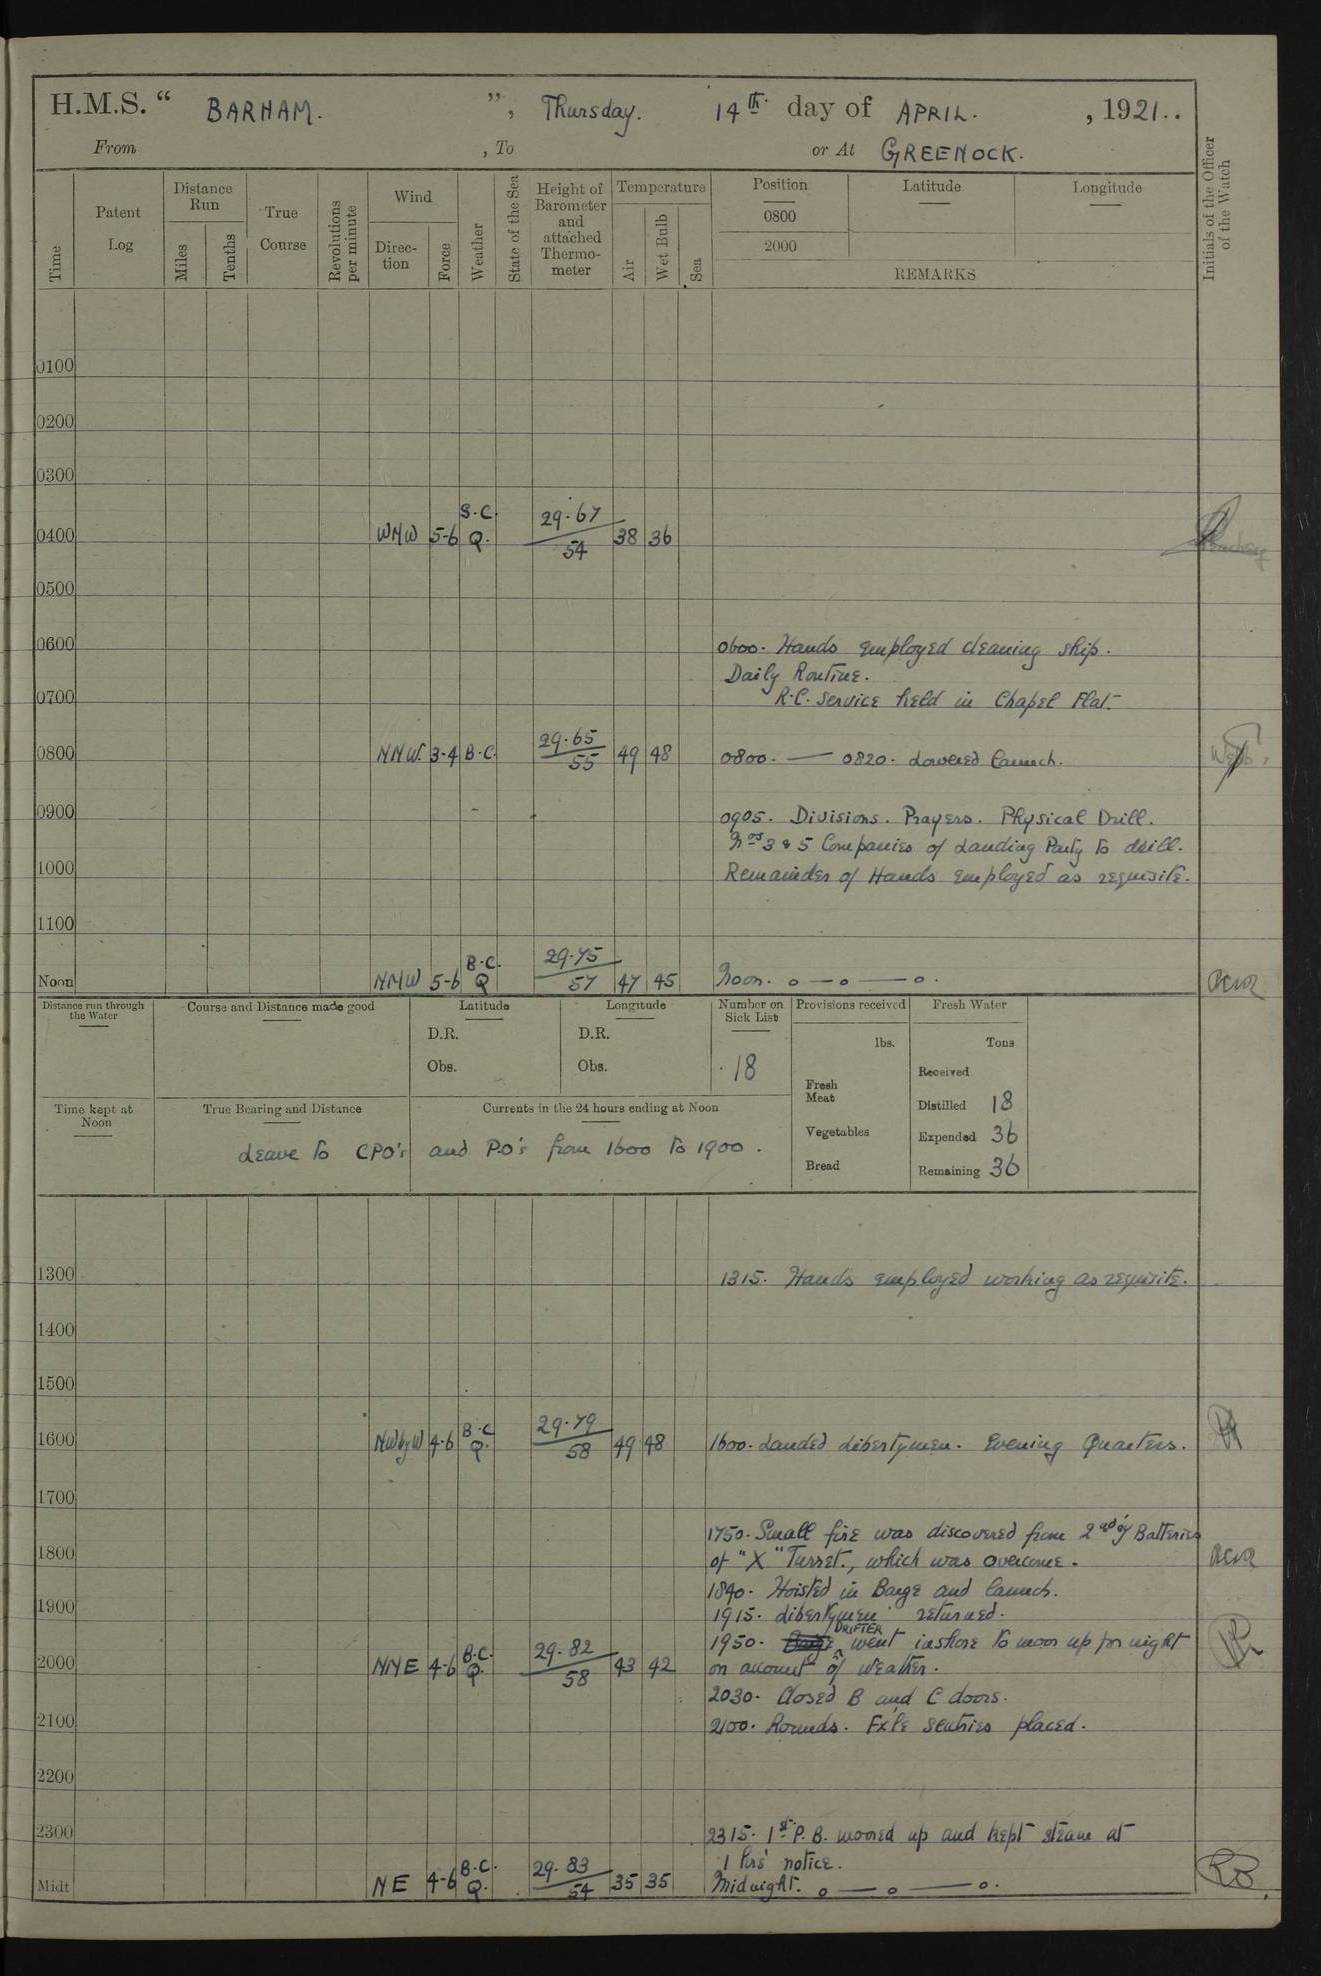 H.M.S. “ BARHAM. ”, Thursday. 14th. day of APRIL. , 1921..
From , To or At GREENOCK.
Time
Patent Log
Distance Run
Miles
Tenths
True Course
Revolutions per minute
Wind
Direc- tion
Force
Weather
State of the Sea
Height of Barometer and attached Thermo- meter
Temperature
Air
Wet Bulb
Sea
Position
0800
2000
Latitude
Longitude
REMARKS
Initials of the Officer of the Watch
0100
0200
0300
0400 WNW 5-6 S.C. Q. 29.67 / 54 38 36
0500
0600 0600. Hands employed cleaning ship.
Daily Routine.
0700 R.C. Service held in Chapel Flat.
0800 NNW. 3-4 B.C. 29.65 / 55 49 48 0800. — 0820. Lowered launch.
0900 0905. Divisions. Prayers. Physical Drill.
Nos 3 & 5 Companies of Landing Party to drill.
1000 Remainder of Hands employed as requisite.
1100
Noon NNW 5-6 B.C. Q 29.75 / 57 47 45 Noon. o — o — o.
Distance run through the Water
Course and Distance made good
Latitude
D.R.
Obs.
Longitude
D.R.
Obs.
Number on Sick List
18
Provisions received
lbs.
Fresh Meat
Vegetables
Bread
Fresh Water
Tons
Received
Distilled 18
Expended 36
Remaining 36
Time kept at Noon
True Bearing and Distance
Currents in the 24 hours ending at Noon
Leave to CPO's and P.O's from 1600 to 1900.
1300 1315. Hands employed working as requisite.
1400
1500
1600 NWbyW 4-6 B.C Q. 29.79 / 58 49 48 1600. Landed libertymen. Evening Quarters.
1700
1750. Small fire was discovered from 2nd'y Batteries
1800 of "X" Turret., which was overcome.
1840. Hoisted in Barge and launch.
1900 1915. libertymen returned.
1950. DRIFTER went inshore to moor up for night
2000 NNE 4-6 B.C. Q. 29.82 / 58 43 42 on account of weather.
2030. Closed B and C doors.
2100 2100. Rounds. Ex P.E sentries placed.
2200
2300 2315. 1st P.B. moored up and kept steam at
1 hrs' notice.
Midt NE 4-6 B.C. Q. 29.83 / 54 35 35 Midnight. o — o — o.
RB